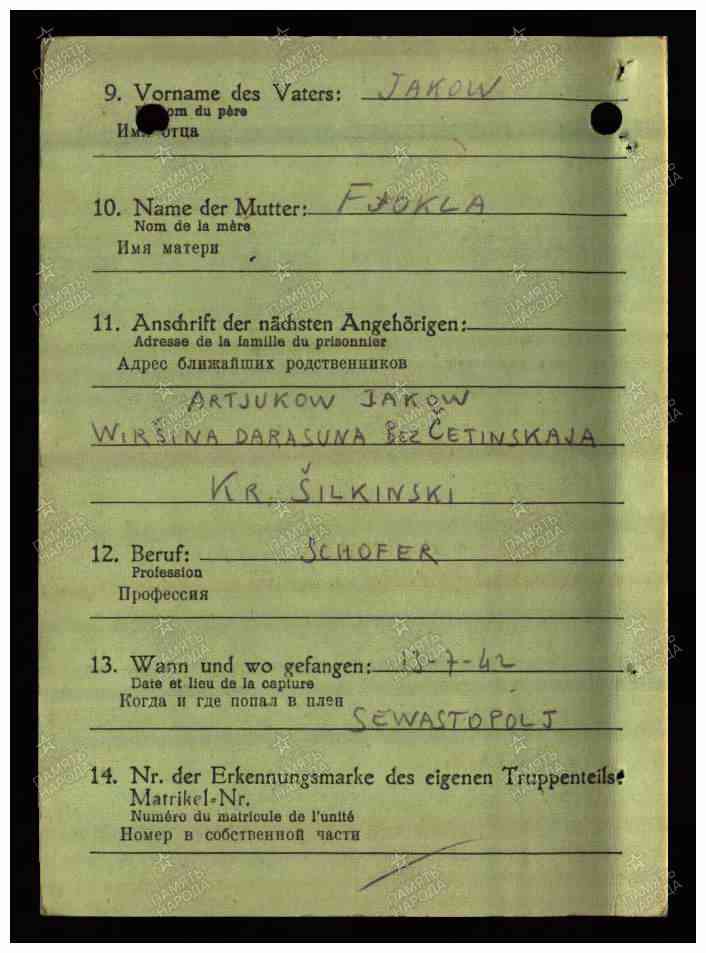 9. Vorname des Vaters: JAKOW
om du père
Имя отца
10. Name der Mutter: FJOKLA
Nom de la mère
Имя матери
11. Anschrift der nächsten Angehörigen:
Adresse de la famille du prisonnier
Адрес ближайших родственников
ARTJUKOW JAKOW
WIRŠINA DARASUNA BEZ ČETINSKAJA
KR. ŠILKINSKI
12. Beruf: SCHOFER
Profession
Профессия
13. Wann und wo gefangen: 13-7-42
Date et lieu de la capture
Когда и где попал в плен
SEWASTOPOLJ
14. Nr. der Erkennungsmarke des eigenen Truppenteils:
Matrikel-Nr.
Numéro du matricule de l'unité
Номер в собственной части
ПАМЯТЬ
НАРОДА